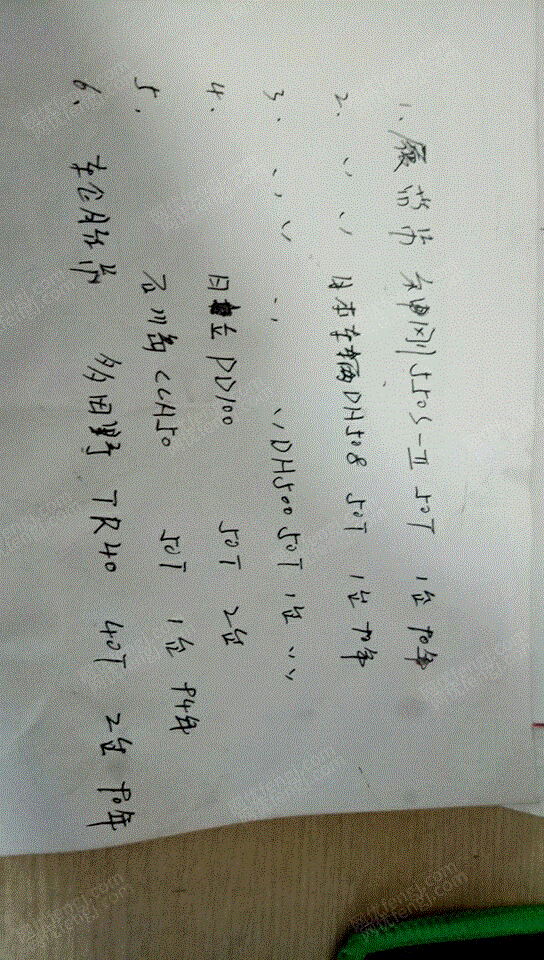 1. 履带吊 神刚 550S-II 50T 1台 90年
2. 〃 〃 日本车辆DH508 50T 1台 90年
3. 〃 〃 〃 〃DH500 50T 1台 〃
4. 日立 PD100 50T 2台
5. 石川岛 CCH50 50T 1台 94年
6. 轮胎吊 多田野 TR40 40T 2台 90年